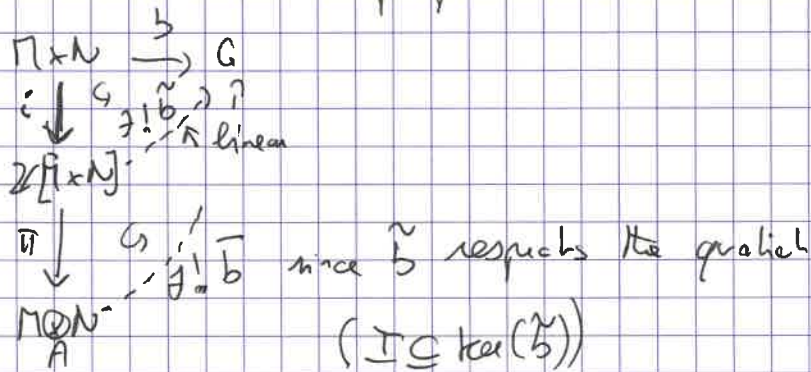 b
M×N → G
i ↓ ↺ ∃! b̃ ↖ linear
ℤ[M×N]
π ↓ ↺ ∃! b̄ since b̃ respects the quotient
M⊗N
A
(I ⊆ ker(b̃))